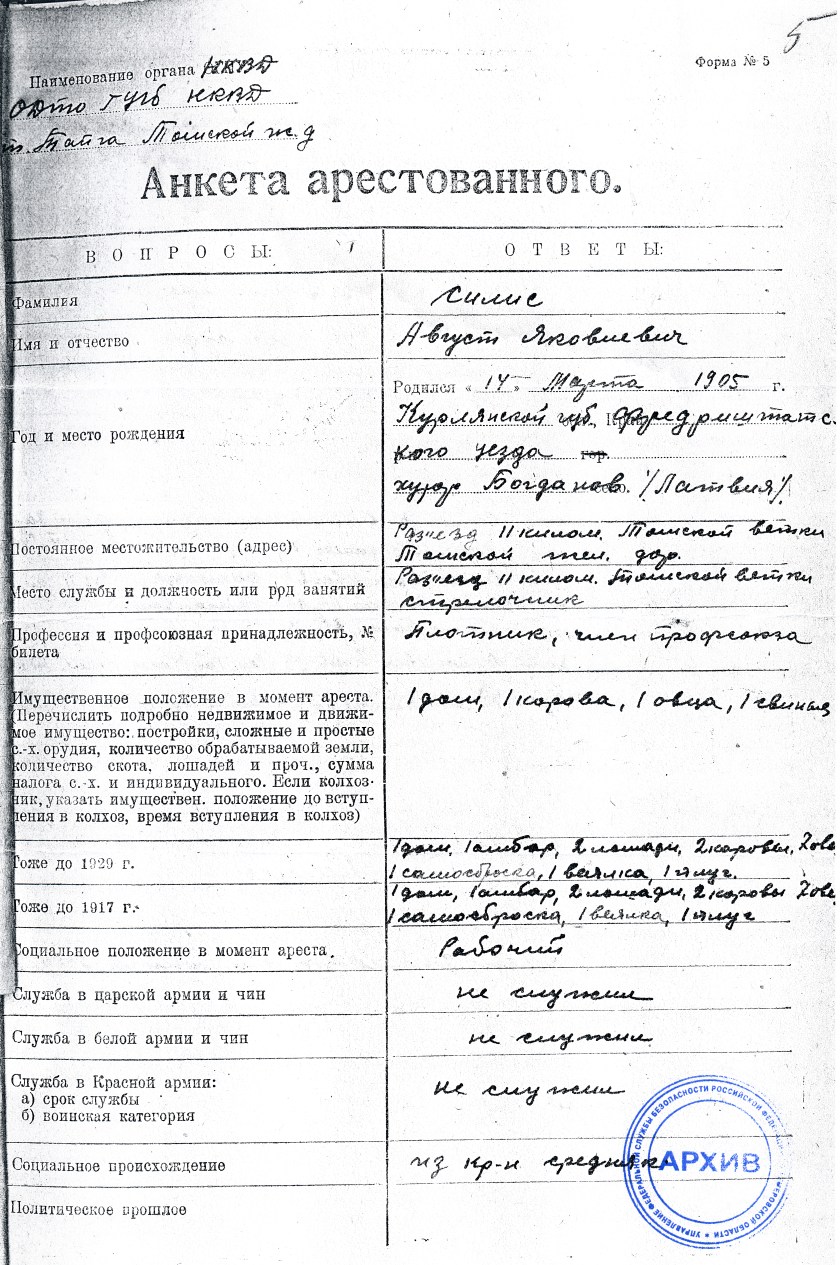 5
Форма № 5
Наименование органа НКВД
ОДТО ГУГБ НКВД
ст. Тайга Томской ж.д
Анкета арестованного.
ВОПРОСЫ:
ОТВЕТЫ:
Фамилия
Силис
Имя и отчество
Август Яковлевич
Год и место рождения
Родился « 14 » Марта 1905 г.
Курлянской губ. Фредриштатс
кого уезда гор.
хутор Богданов /Латвия/.
Постоянное местожительство (адрес)
Разъезд 11 килом. Томской ветки
Томской жел. дор.
Место службы и должность или род занятий
Разъезд 11 килом. Томской ветки
стрелочник
Профессия и профсоюзная принадлежность, №
билета
Плотник, член профсоюза
Имущественное положение в момент ареста.
(Перечислить подробно недвижимое и движи-
мое имущество: постройки, сложные и простые
с.-х. орудия, количество обрабатываемой земли,
количество скота, лошадей и проч., сумма
налога с.-х. и индивидуального. Если колхоз-
ник, указать имуществен. положение до вступ-
ления в колхоз, время вступления в колхоз)
1 дом, 1 корова, 1 овца, 1 свинья
Тоже до 1929 г.
1 дом, 1 амбар, 2 лошади, 2 коровы, 7 ове
1 самосброска, 1 веялка, 1 плуг.
Тоже до 1917 г.
1 дом, 1 амбар, 2 лошади, 2 коровы 7 ове
1 самосброска, 1 веялка, 1 плуг
Социальное положение в момент ареста.
Рабочий
Служба в царской армии и чин
не служил
Служба в белой армии и чин
не служил
Служба в Красной армии:
а) срок службы
б) воинская категория
не служил
Социальное происхождение
из кр-н средняк
Политическое прошлое
АРХИВ
УПРАВЛЕНИЕ ФЕДЕРАЛЬНОЙ СЛУЖБЫ БЕЗОПАСНОСТИ РОССИЙСКОЙ ФЕДЕРАЦИИ КЕМЕРОВСКОЙ ОБЛАСТИ